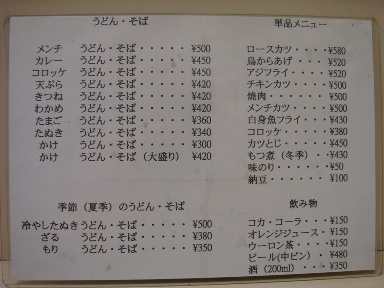 うどん・そば
メンチ うどん・そば・・・・・¥500
カレー うどん・そば・・・・・¥450
コロッケ うどん・そば・・・・・¥450
天ぷら うどん・そば・・・・・¥420
きつね うどん・そば・・・・・¥420
わかめ うどん・そば・・・・・¥420
たまご うどん・そば・・・・・¥360
たぬき うどん・そば・・・・・¥340
かけ うどん・そば・・・・・¥300
かけ うどん・そば（大盛り）¥420
季節（夏季）のうどん・そば
冷やしたぬきうどん・そば・・・・・¥500
ざる うどん・そば・・・・・¥380
もり うどん・そば・・・・・¥350
単品メニュー
ロースカツ・・・・¥580
鳥からあげ・・・・¥520
アジフライ・・・・¥520
チキンカツ・・・・¥500
焼肉・・・・・・・¥500
メンチカツ・・・・¥500
白身魚フライ・・・¥430
コロッケ・・・・・¥380
カツとじ・・・・・¥450
もつ煮（冬季）・・¥430
味のり・・・・・・¥50
納豆・・・・・・¥100
飲み物
コカ・コーラ・・・¥150
オレンジジュース・¥150
ウーロン茶・・・・¥150
ビール(中ビン)・¥480
酒（200ml)・・・¥350